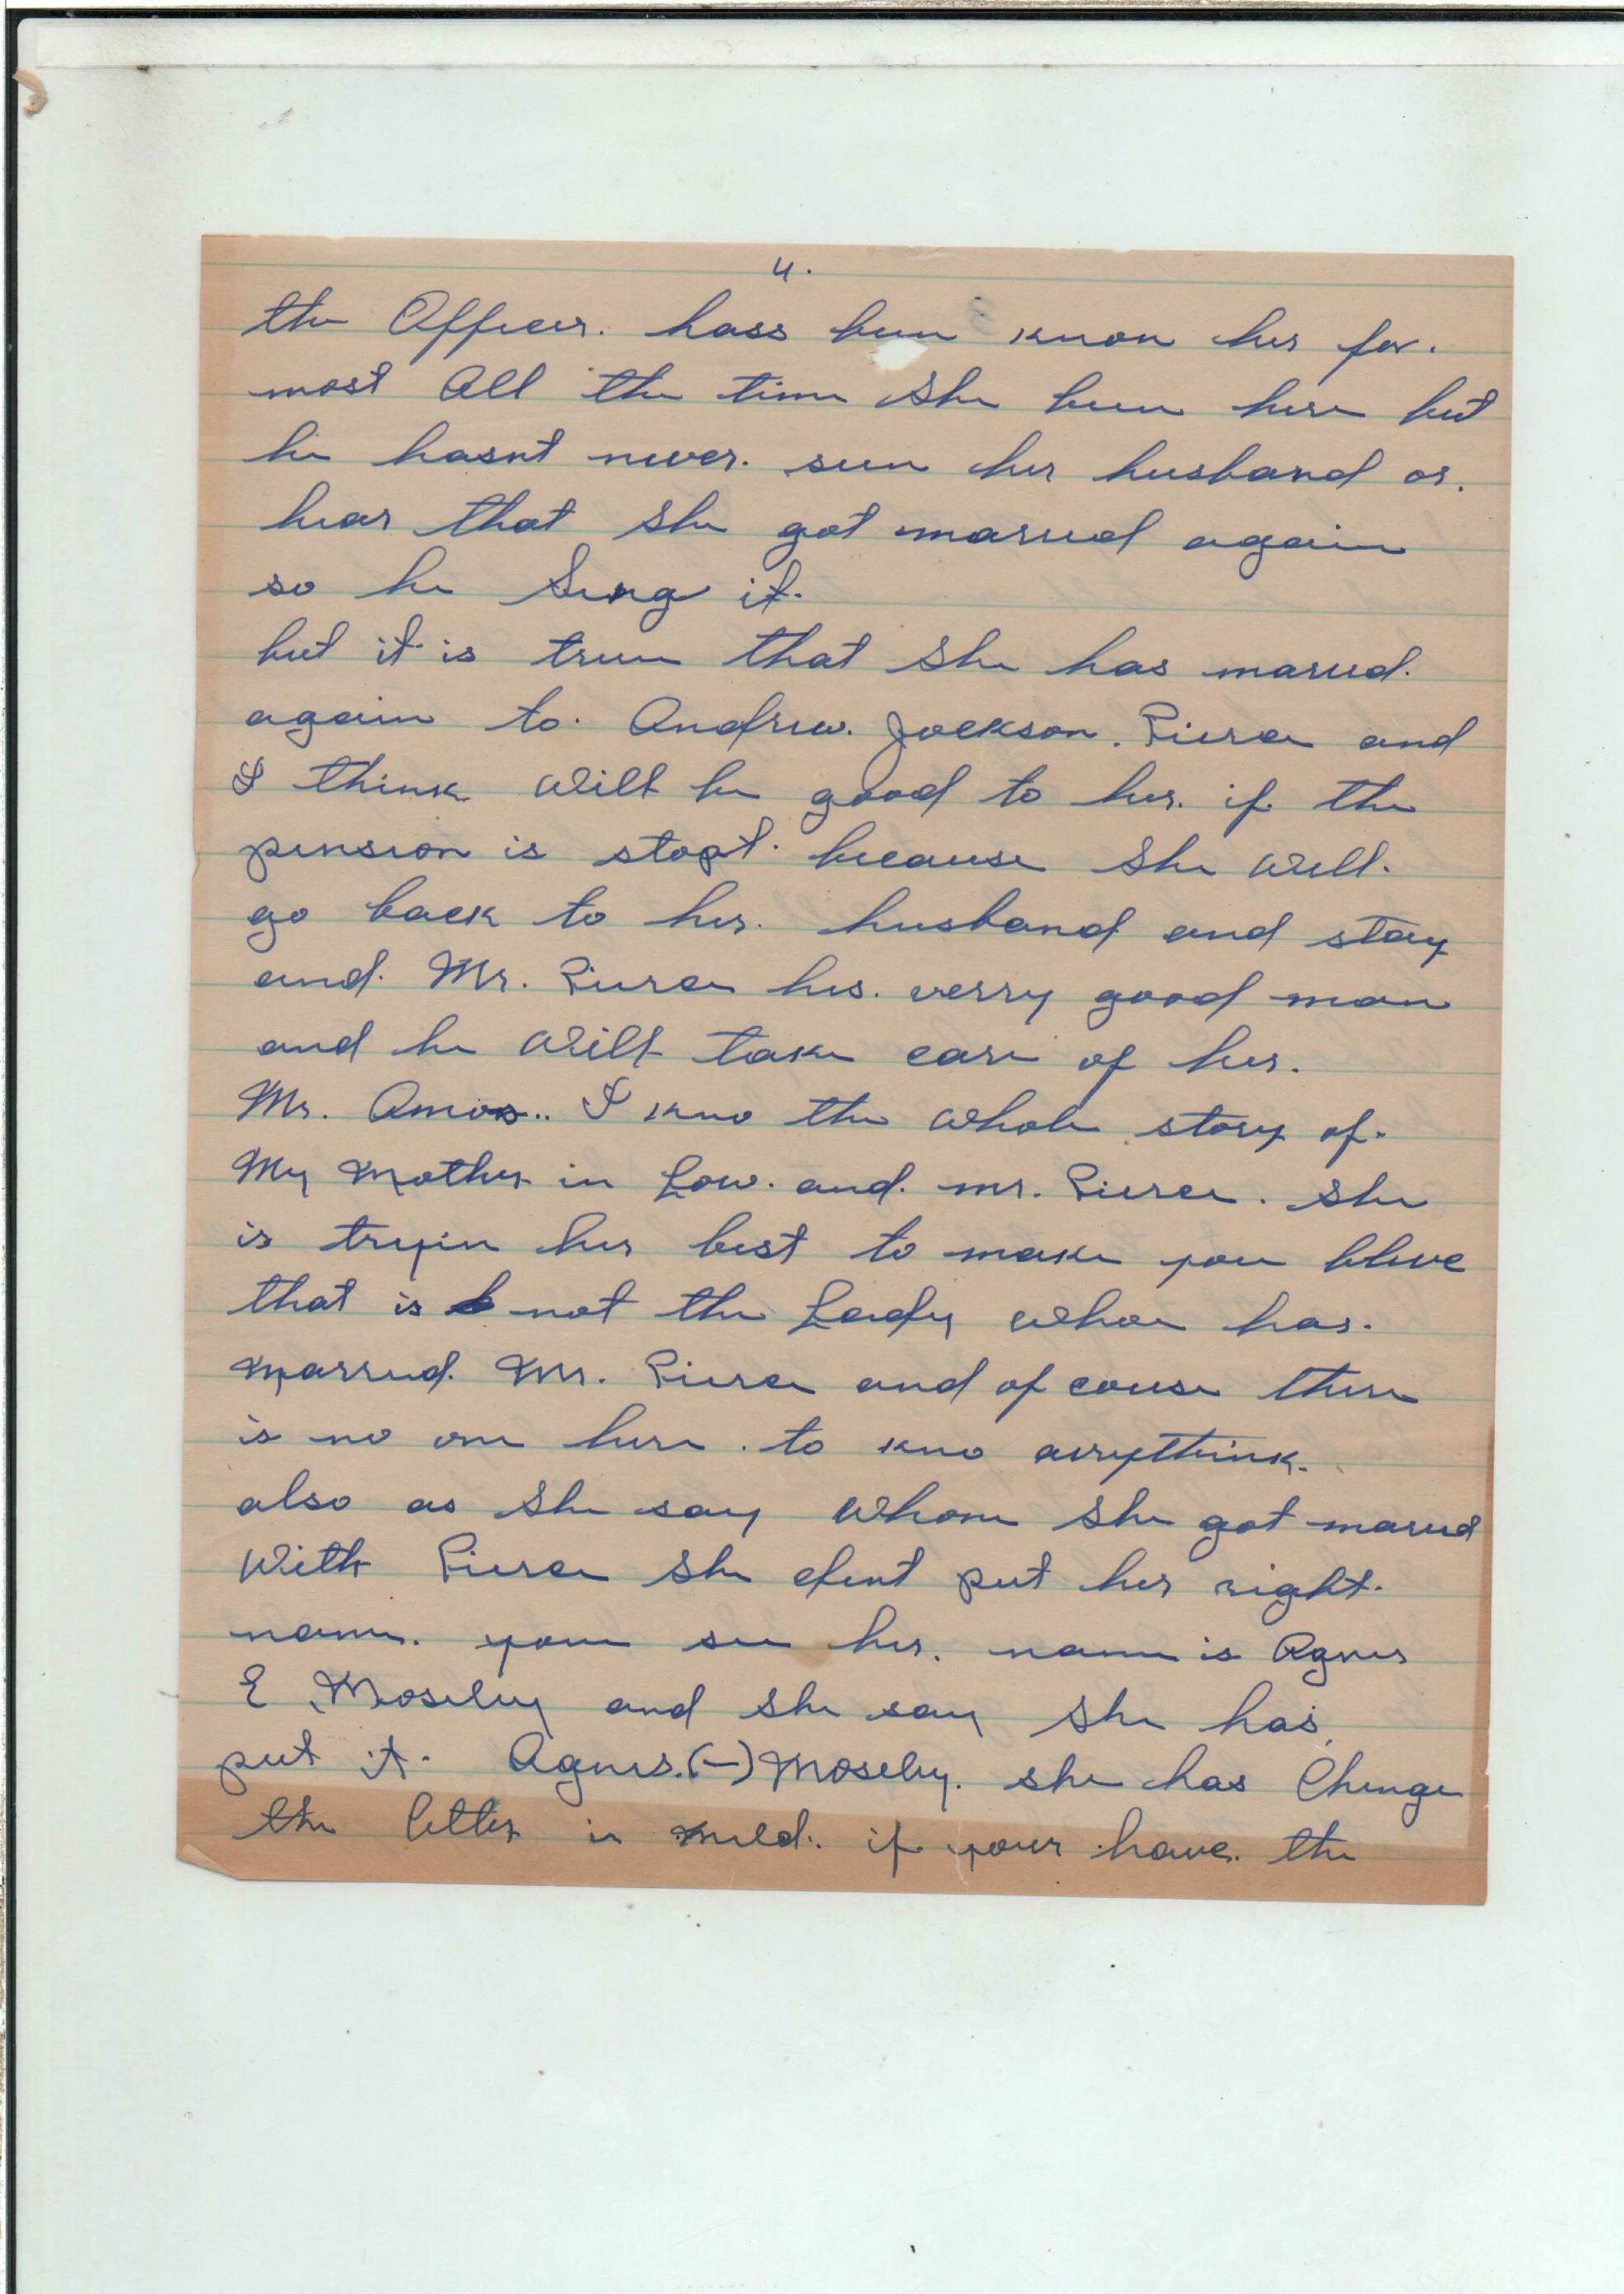 4.
the Officer. hass been know her for.
most All the time She been here but
he hasnt never. seen her husband or.
hear that She got maried again
so he Sing it.
but it is true that She has maried.
again to. Andrew. Jackson. Pierce and
I think Will be good to her. if the
pension is stopt. because She Will.
go back to her. husband and stay
and. Mr. Pierce his. verry good man
and he Will take care of her.
Mr. Amos.. I kno the Whole story of.
My Mother in Law. and. mr. Pierce. She
is tryin her best to make you bleve
that is not the Lady whoe has.
Marred. Mr. Pierce and of couse there
is no one here. to kno avrythink.
also as She say Whone She got maried
With Pierce She dent put her right.
name. you see her. name is Agnes
E Moseley and She say She has
put it. Agnes.(-) Moseley. she has Change
the letter in meld. if your have. the